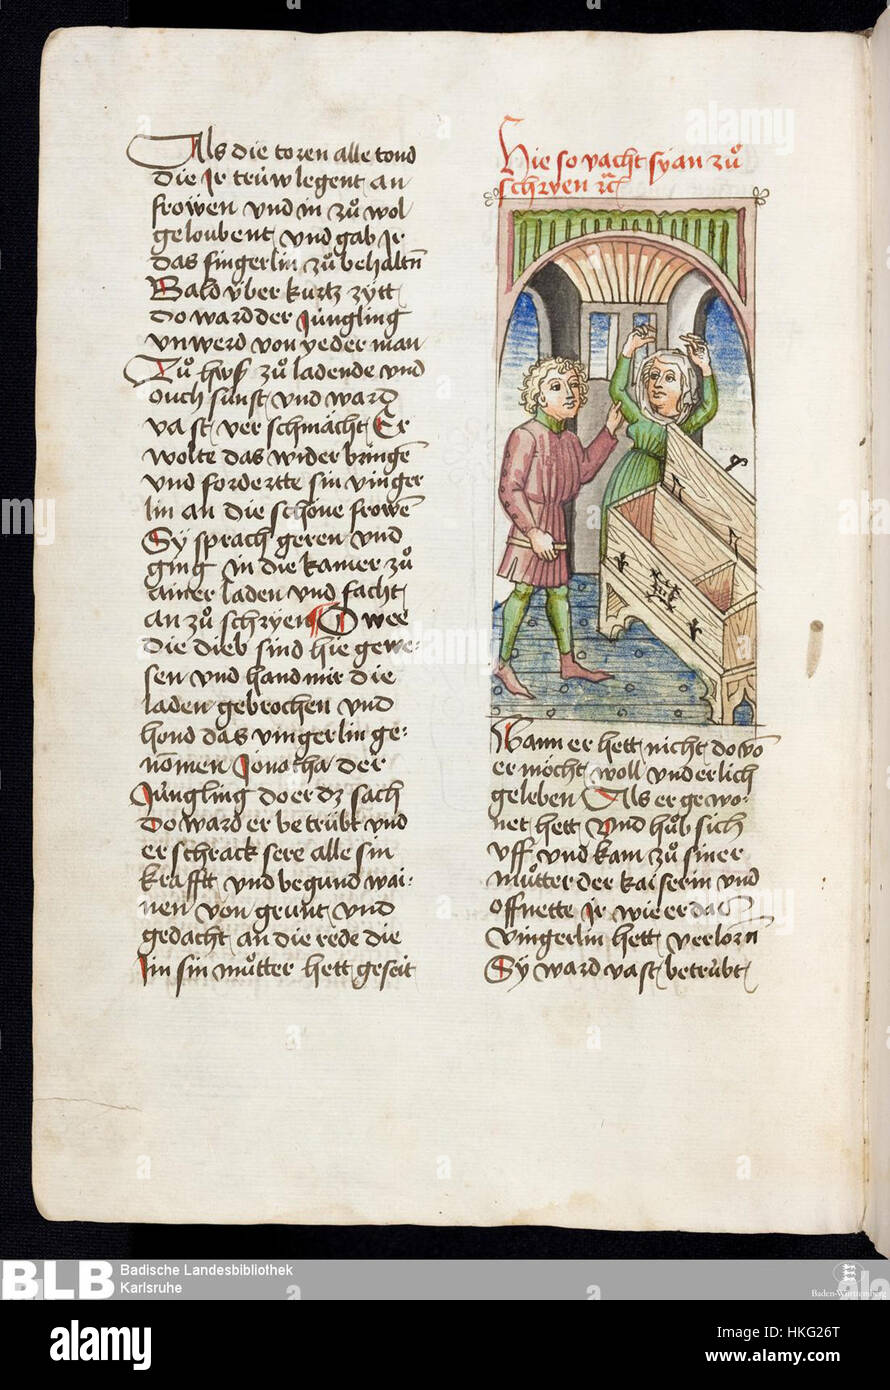 Als die toren alle tond
die Jr trüw legent an
frowen vnd in zuͦ wol
geloubent vnd gab Jr
das fingerlin zuͦ behaltn̄
Bald yber kurtz zytt
do ward der Jüngling
vnwerd von yeder man
Zuͦ hws zuͦ ladende vnd
ouch sunst vnd ward
vast ver schmächt Er
wolte das wider bringē
vnd fordertte sin vinger
lin an die schöne frowē
Sy sprach geren vnd
ging in die kamer zuͦ
ainer laden vnd facht
an zuͦ schryen O wee
die dieb sind hie gewe-
sen vnd hand mir die
laden gebrochen vnd
hond das vingerlin ge-
nömen Jonatha der
Jüngling do er dz sach
Do ward er betrübt vnd
er schrack sere alle sin
krafft vnd begund wai-
nen von grunt vnd
gedacht an die rede die
Jm sin muͦtter hett geseit
Hie so vacht sy an zuͦ
schryen
Wann er hett nicht do vō
er möcht woll vnd erlich
geleben Als er gewo-
net hett Vnd huͦb sich
vff vnd kam zuͦ siner
muͦtter der kaiserin vnd
offnette Jr wie er das
vingerlin hett verlorn̄
Sy ward vast betrübt
BLB Badische Landesbibliothek
Karlsruhe
Baden-Württemberg
alamy
Image ID: HKG26T
www.alamy.com